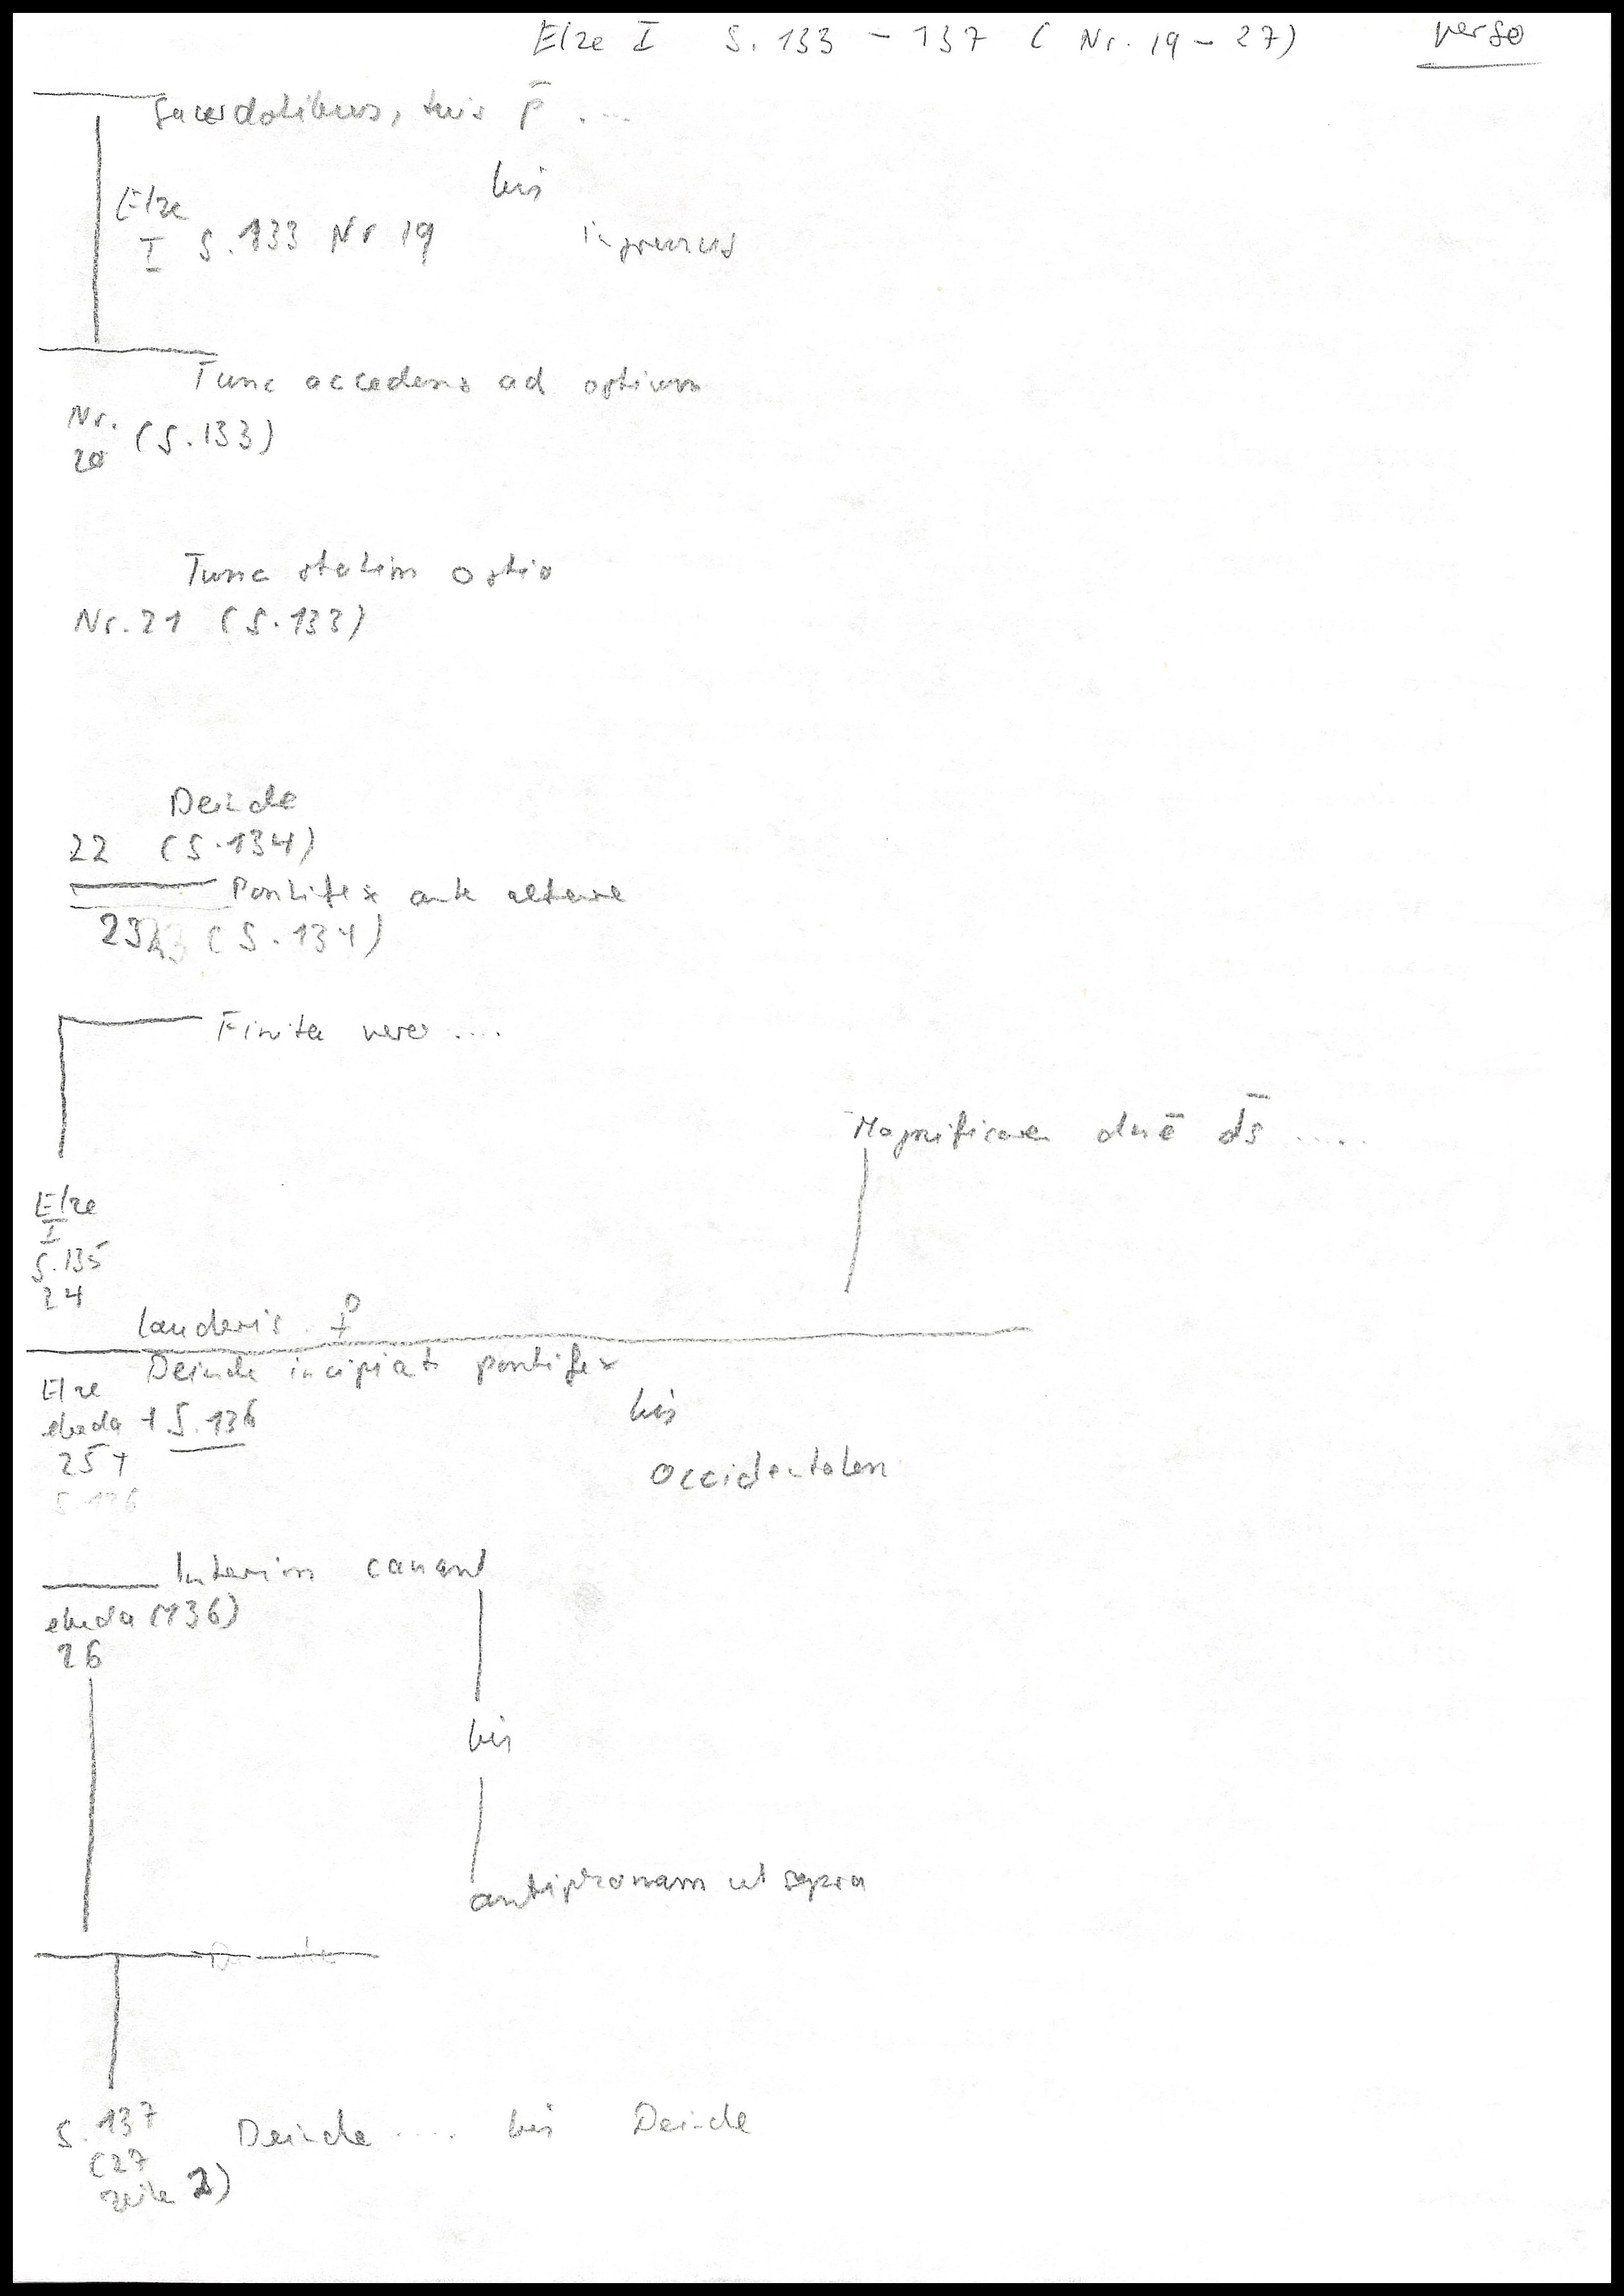 Elze I S. 133 - 137 (Nr. 19 - 27) verso
Sacerdotibus, tuis p̄ ....
bis
Elze
I S. 133 Nr 19
Tunc accedens ad ostium
Nr.
20 (S. 133)
Tunc statim ostio
Nr. 21 (S. 133)
Deinde
22 (S. 134)
Pontifex ante altare
23 (S. 134)
Finita vero ....
Magnificare dnē d̄s .....
Elze
I
S. 135
24
lauderis.
Deinde incipiat pontifex
Elze
ebeda + S. 136
bis
25 +
S. 136
Occidentalem
Interim canant
ebeda (136)
26
bis
antiphonam ut supra
Deinde
S. 137
(27
Zeile 2)
Deinde .... bis Deinde